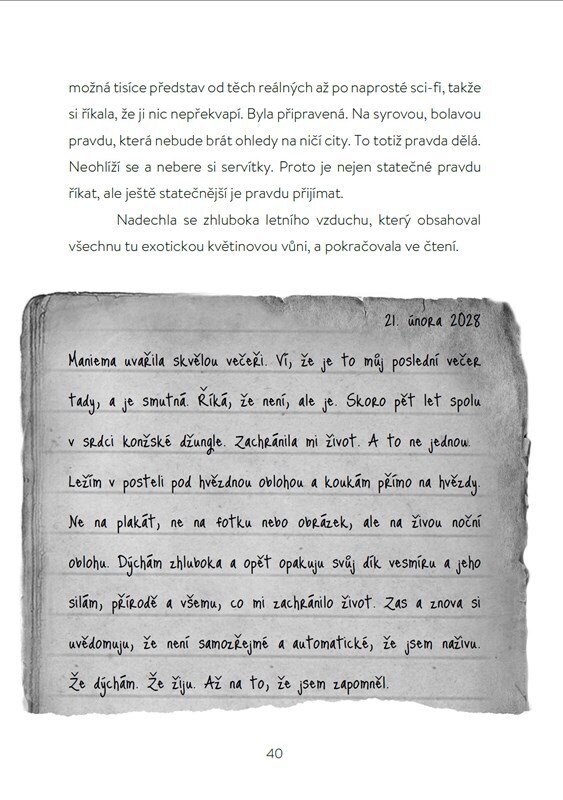 možná tisíce představ od těch reálných až po naprosté sci-fi, takže
si říkala, že ji nic nepřekvapí. Byla připravená. Na syrovou, bolavou
pravdu, která nebude brát ohledy na ničí city. To totiž pravda dělá.
Neohlíží se a nebere si servítky. Proto je nejen statečné pravdu
říkat, ale ještě statečnější je pravdu přijímat.
Nadechla se zhluboka letního vzduchu, který obsahoval
všechnu tu exotickou květinovou vůni, a pokračovala ve čtení.
21. února 2028
Maniema uvařila skvělou večeři. Ví, že je to můj poslední večer
tady, a je smutná. Říká, že není, ale je. Skoro pět let spolu
v srdci konžské džungle. Zachránila mi život. A to ne jednou.
Ležím v posteli pod hvězdnou oblohou a koukám přímo na hvězdy.
Ne na plakát, ne na fotku nebo obrázek, ale na živou noční
oblohu. Dýchám zhluboka a opět opakuju svůj dík vesmíru a jeho
silám, přírodě a všemu, co mi zachránilo život. Zas a znova si
uvědomuju, že není samozřejmé a automatické, že jsem naživu.
Že dýchám. Že žiju. Až na to, že jsem zapomněl.
40